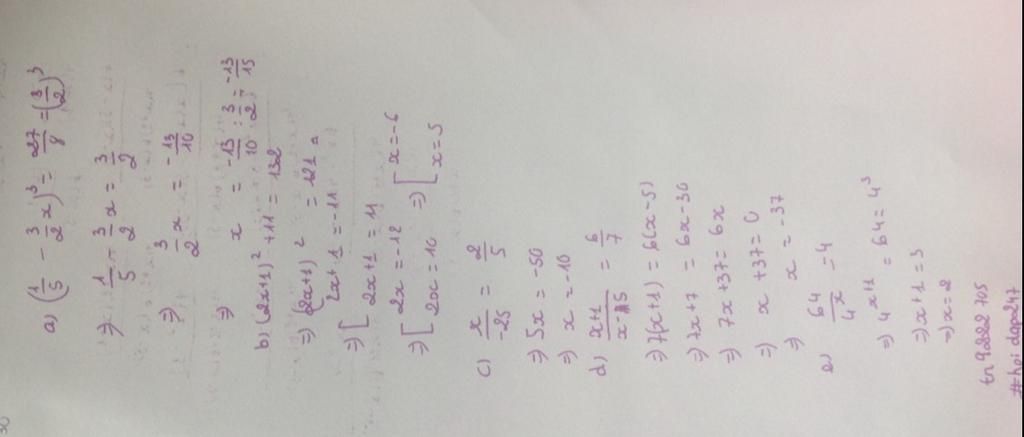 a) (1/5 - 3/2 x)³ = 27/8 = (3/2)³
=> 1/5 - 3/2 x = 3/2
=> 3/2 x = -13/10
=> x = -13/10 : 3/2 = -13/15
b) (2x+1)² + 11 = 132
=> (2x+1)² = 121
=> [ 2x+1 = -11
2x+1 = 11
=> [ 2x = -12 => [ x = -6
2x = 10 x = 5
c) x/-25 = 2/5
=> 5x = -50
=> x = -10
d) x+1/x-5 = 6/7
=> 7(x+1) = 6(x-5)
=> 7x+7 = 6x-30
=> 7x+37 = 6x
=> x+37 = 0
=> x = -37
e) 64/4ˣ = 4
=> 4ˣ⁺¹ = 64 = 4³
=> x+1 = 3
=> x = 2
tn9222705
#hoidap247